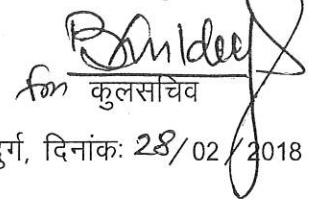 for कुलसचिव
दुर्ग, दिनांकः 28/02/2018